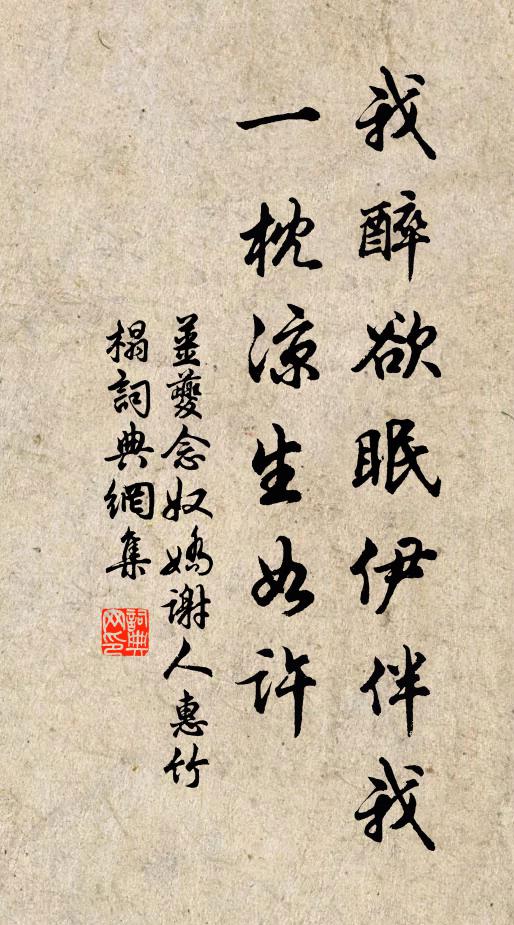 我醉欲眠伊伴我
一枕涼生如許
薑夔念奴嬌謝人惠竹
榻詞典網集
詞典
网印